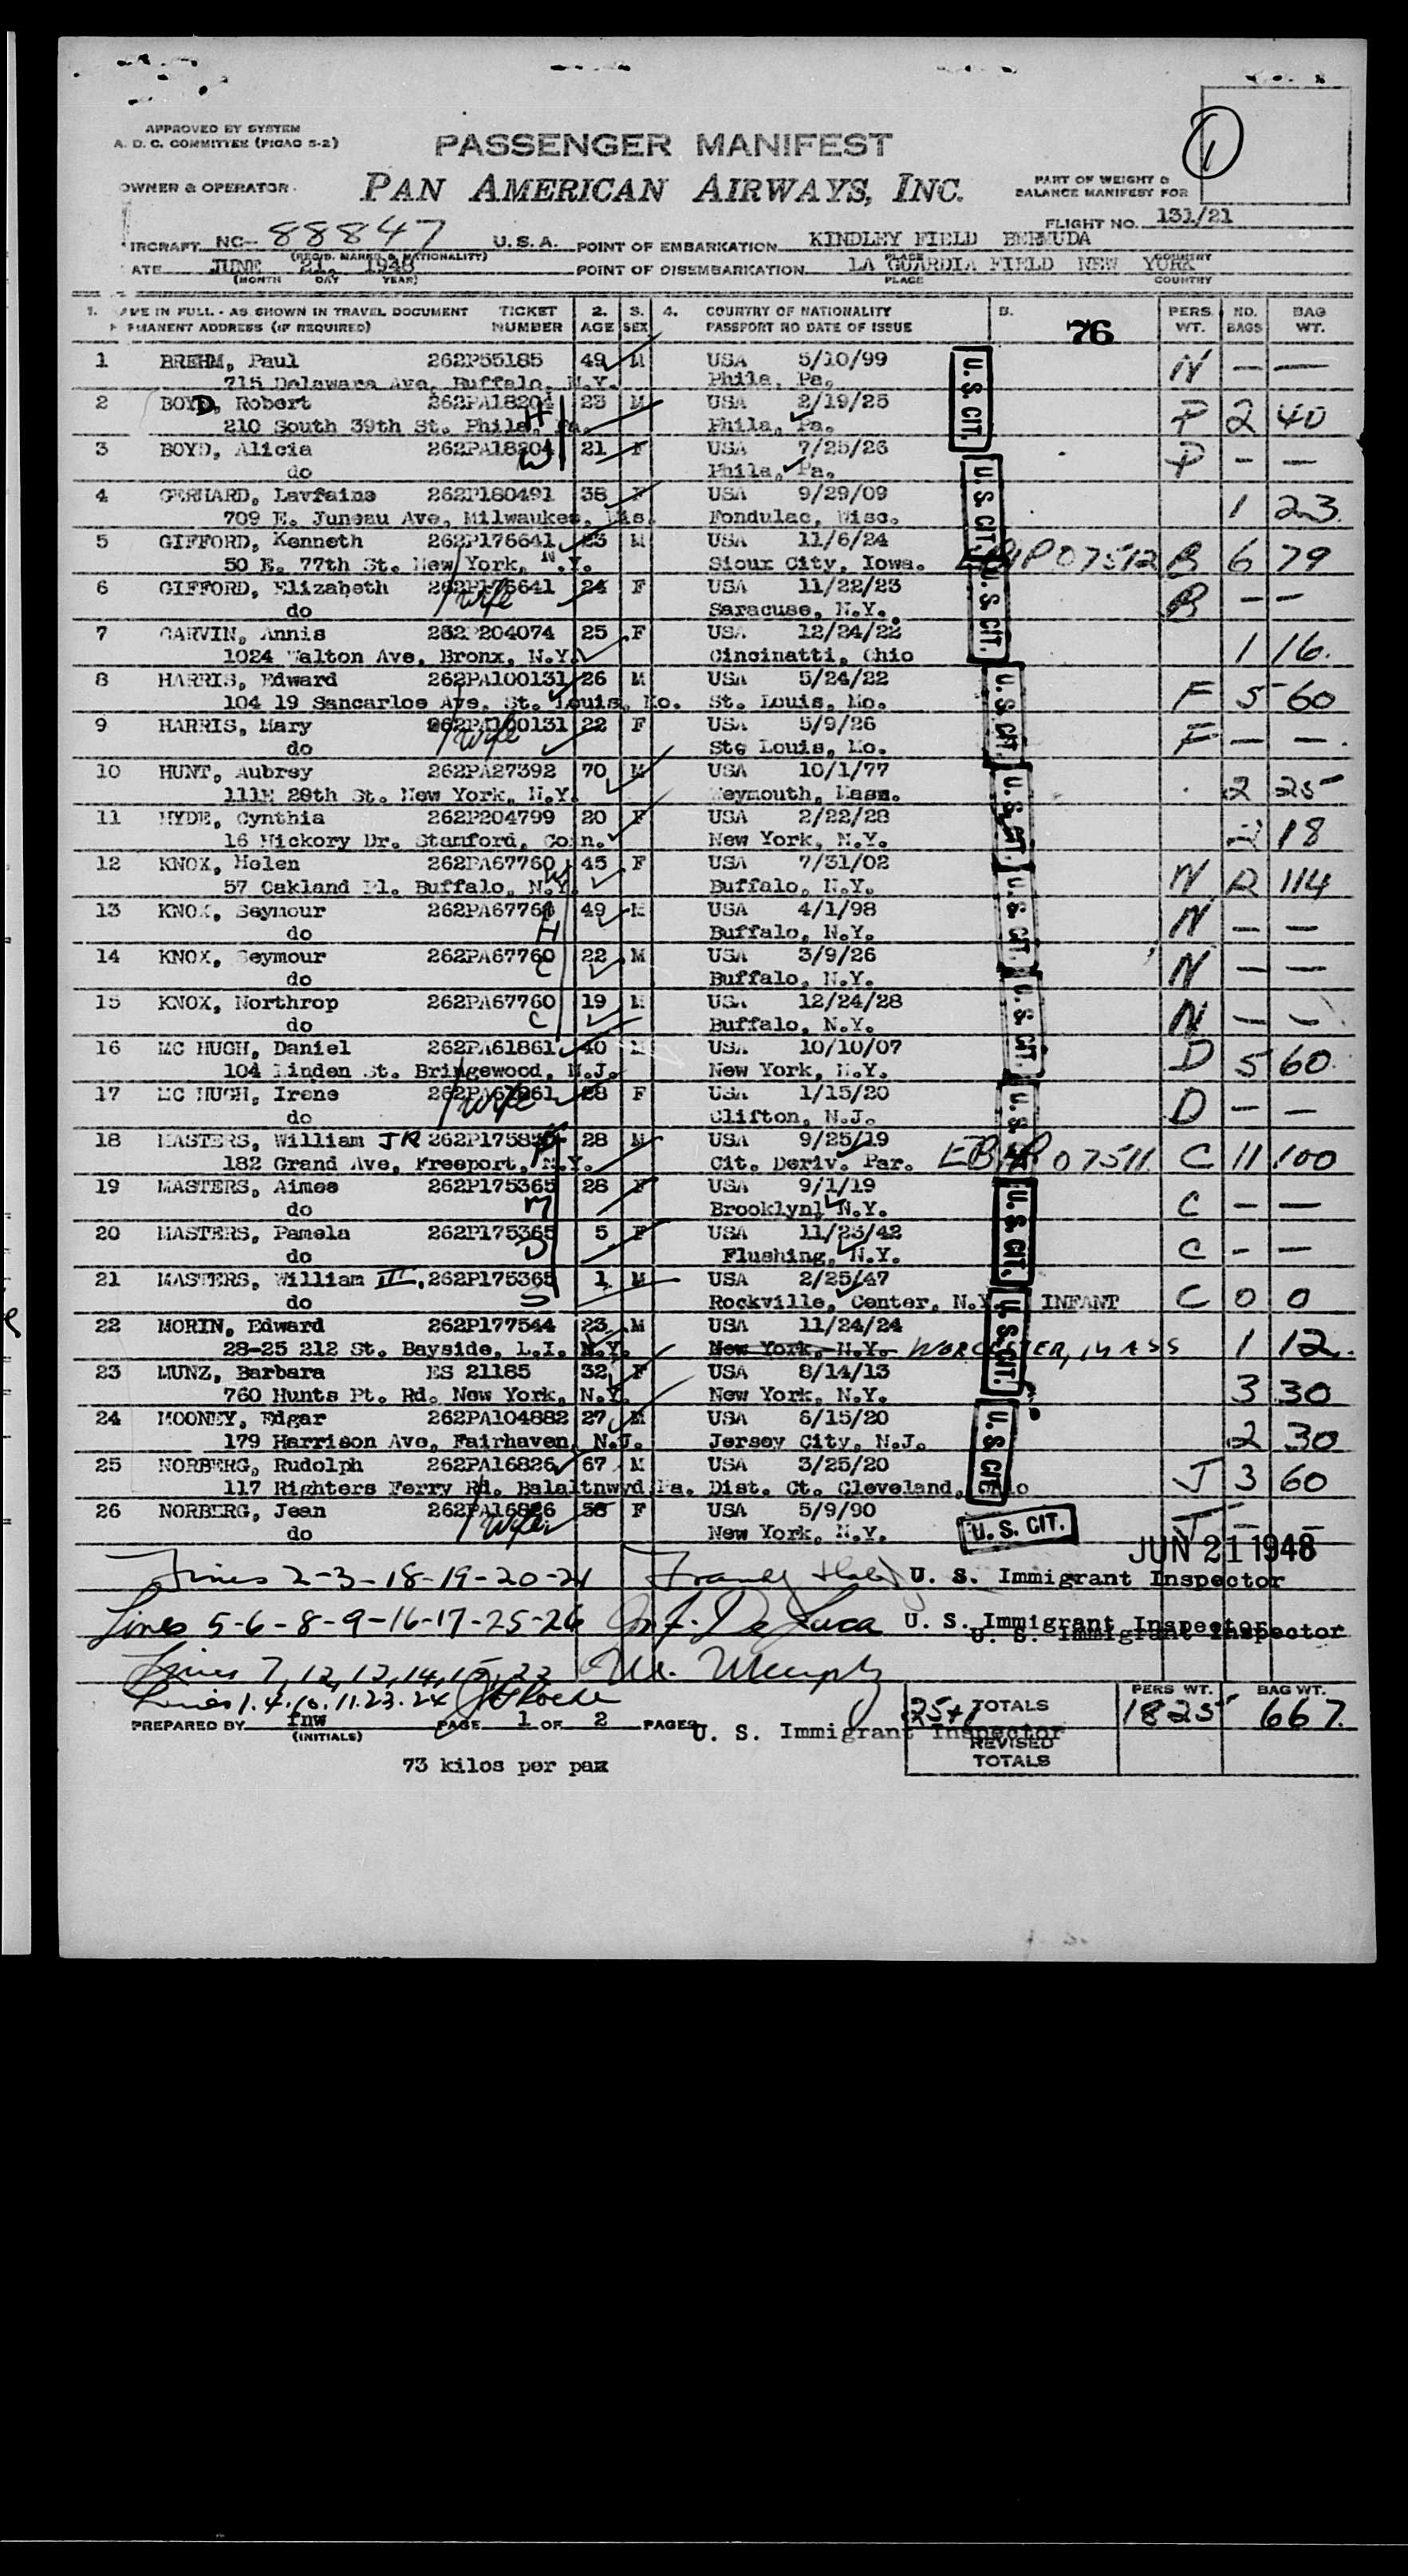 APPROVED BY SYSTEM
A. D. C. COMMITTEE (PICAO S-2)
PASSENGER MANIFEST
1
OWNER & OPERATOR.
PAN AMERICAN AIRWAYS, INC.
PART OF WEIGHT &
BALANCE MANIFEST FOR
FLIGHT NO. 131/21
IRCRAFT NC- 88847 U.S.A. POINT OF EMBARKATION KINDLEY FIELD BERMUDA
(REGIS. MARKS & NATIONALITY) PLACE COUNTRY
ATE JUNE 21, 1948 POINT OF DISEMBARKATION LA GUARDIA FIELD NEW YORK
(MONTH DAY YEAR) PLACE COUNTRY
1. ME IN FULL - AS SHOWN IN TRAVEL DOCUMENT TICKET 2. 3. 4. COUNTRY OF NATIONALITY 5. 76 PERS. NO. BAG
MANENT ADDRESS (IF REQUIRED) NUMBER AGE SEX PASSPORT NO DATE OF ISSUE WT. BAGS WT.
1 BREHM, Paul 262P55185 49 M USA 5/10/99 N — —
715 Delaware Ave, Buffalo, N.Y. Phila, Pa. U.S. CIT.
2 BOYD, Robert 262PA18204 23 M USA 2/19/25 P 2 40
210 South 39th St. Phila, Pa. H Phila, Pa.
3 BOYD, Alicia 262PA18204 21 F USA 7/25/26 P — —
do W Phila, Pa.
4 GERHARD, Lavfaine 262P180491 38 F USA 9/29/09 1 23
709 E. Juneau Ave, Milwaukee, Wis. Fondulac, Wisc. U.S. CIT.
5 GIFFORD, Kenneth 262P176641 23 M USA 11/6/24 07512 B 6 79
50 E. 77th St. New York, N.Y. Sioux City, Iowa.
6 GIFFORD, Elizabeth 262P176641 24 F USA 11/22/23 B — —
do wife Saracuse, N.Y. U.S. CIT.
7 GARVIN, Annis 262P204074 25 F USA 12/24/22 1 16.
1024 Walton Ave, Bronx, N.Y. Cincinatti, Ohio
8 HARRIS, Edward 262PA100131 26 M USA 5/24/22 F 5 60
104 19 Sancarlos Ave. St. Louis, Mo. St. Louis, Mo. U.S. CIT.
9 HARRIS, Mary 262PA100131 22 F USA 5/9/26 F — —
do wife Ste Louis, Mo.
10 HUNT, Aubrey 262PA27392 70 M USA 10/1/77 2 25
111E 28th St. New York, N.Y. Weymouth, Mass. U.S. CIT.
11 HYDE, Cynthia 262P204799 20 F USA 2/22/28 2 18
16 Hickory Dr. Stamford, Conn. New York, N.Y.
12 KNOX, Helen 262PA67760 45 F USA 7/31/02 N 12 114
57 Oakland Pl. Buffalo, N.Y. W Buffalo, N.Y. U.S. CIT.
13 KNOX, Seymour 262PA67760 49 M USA 4/1/98 N — —
do H Buffalo, N.Y.
14 KNOX, Seymour 262PA67760 22 M USA 3/9/26 N — —
do C Buffalo, N.Y.
15 KNOX, Northrop 262PA67760 19 M USA 12/24/28 N — —
do C Buffalo, N.Y. U.S. CIT.
16 MC HUGH, Daniel 262PA61861 40 M USA 10/10/07 D 5 60
104 Linden St. Bringewood, N.J. New York, N.Y.
17 MC HUGH, Irene 262PA61861 28 F USA 1/15/20 D — —
do wife Clifton, N.J.
18 MASTERS, William JR 262P175365 28 M USA 9/25/19 07511 C 11 100
182 Grand Ave, Freeport, N.Y. Cit. Deriv. Par. U.S.
19 MASTERS, Aimee 262P175365 28 F USA 9/1/19 C — —
do M Brooklyn, N.Y. U.S. CIT.
20 MASTERS, Pamela 262P175365 5 F USA 11/23/42 C — —
do D Flushing, N.Y.
21 MASTERS, William III, 262P175365 1 M USA 2/25/47 C 0 0
do S Rockville, Center, N.Y. INFANT
22 MORIN, Edward 262P177544 23 M USA 11/24/24 1 12.
28-25 212 St. Bayside, L.I. N.Y. New York, N.Y. WORCESTER, MASS U.S. CIT.
23 MUNZ, Barbara ES 21185 32 F USA 8/14/13 3 30
760 Hunts Pt. Rd. New York, N.Y. New York, N.Y.
24 MOONEY, Edgar 262PA104882 27 M USA 6/15/20 2 30
179 Harrison Ave, Fairhaven, N.J. Jersey City, N.J. U.S. CIT.
25 NORBERG, Rudolph 262PA16826 67 M USA 3/25/20 J 3 60
117 Righters Ferry Rd. Balaltnwyd Pa. Dist. Ct. Cleveland, Ohio
26 NORBERG, Jean 262PA16826 58 F USA 5/9/90 J — —
do wife New York, N.Y. U. S. CIT.
JUN 21 1948
Lines 2-3-18-19-20-21 U. S. Immigrant Inspector
Lines 5-6-8-9-16-17-25-26 De Luca U. S. Immigrant Inspector
U. S. Immigrant Inspector
Lines 7, 12, 13, 14, 15, 22 M. Murphy
Lines 1. 4. 10. 11. 23. 24 Roche
PERS WT. BAG WT.
25+1 TOTALS 1825 667.
PREPARED BY fnw PAGE 1 OF 2 PAGES U. S. Immigrant Inspector
(INITIALS) REVISED
TOTALS
73 kilos per pax